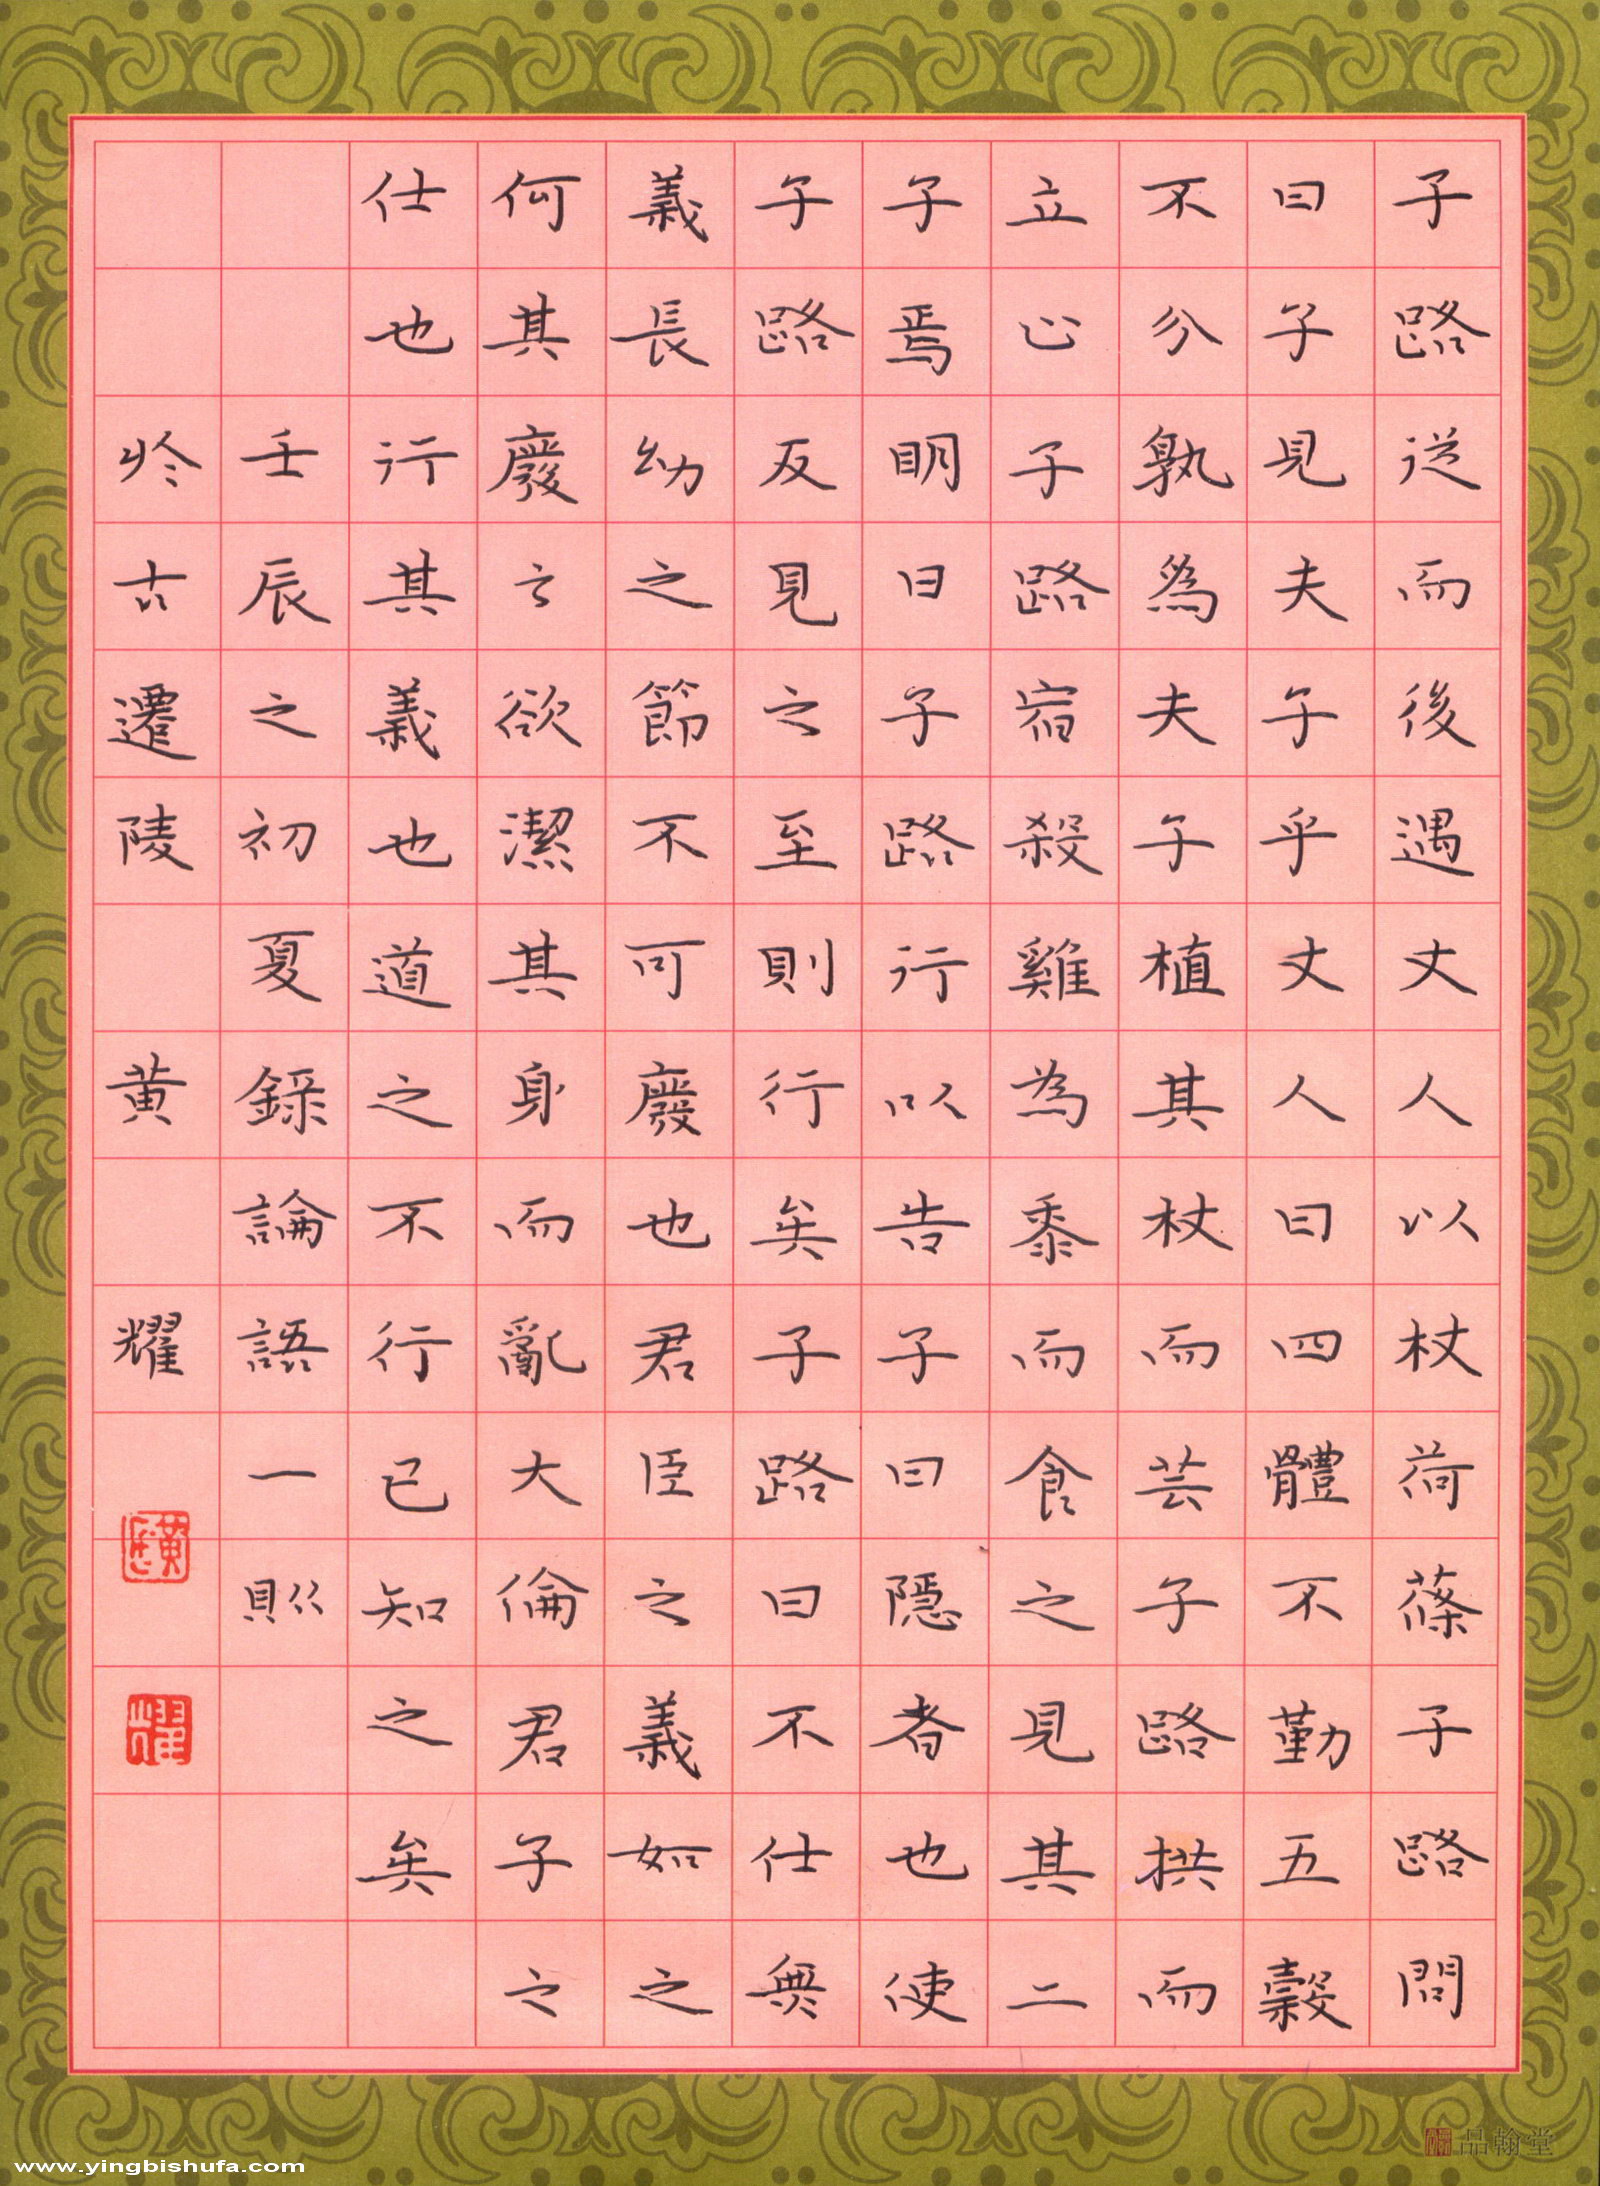 子路従而後遇丈人以杖荷蓧子路問
曰子見夫子乎丈人曰四體不勤五穀
不分孰爲夫子植其杖而芸子路拱而
立止子路宿殺雞為黍而食之見其二
子焉明日子路行以告子曰隱者也使
子路反見之至則行矣子路曰不仕無
義長幼之節不可廢也君臣之義如之
何其廢之欲潔其身而亂大倫君子之
仕也行其義也道之不行已知之矣
壬辰之初夏錄論語一則
於古遷陵 黃 耀
耀
品翰堂
www.yingbishufa.com